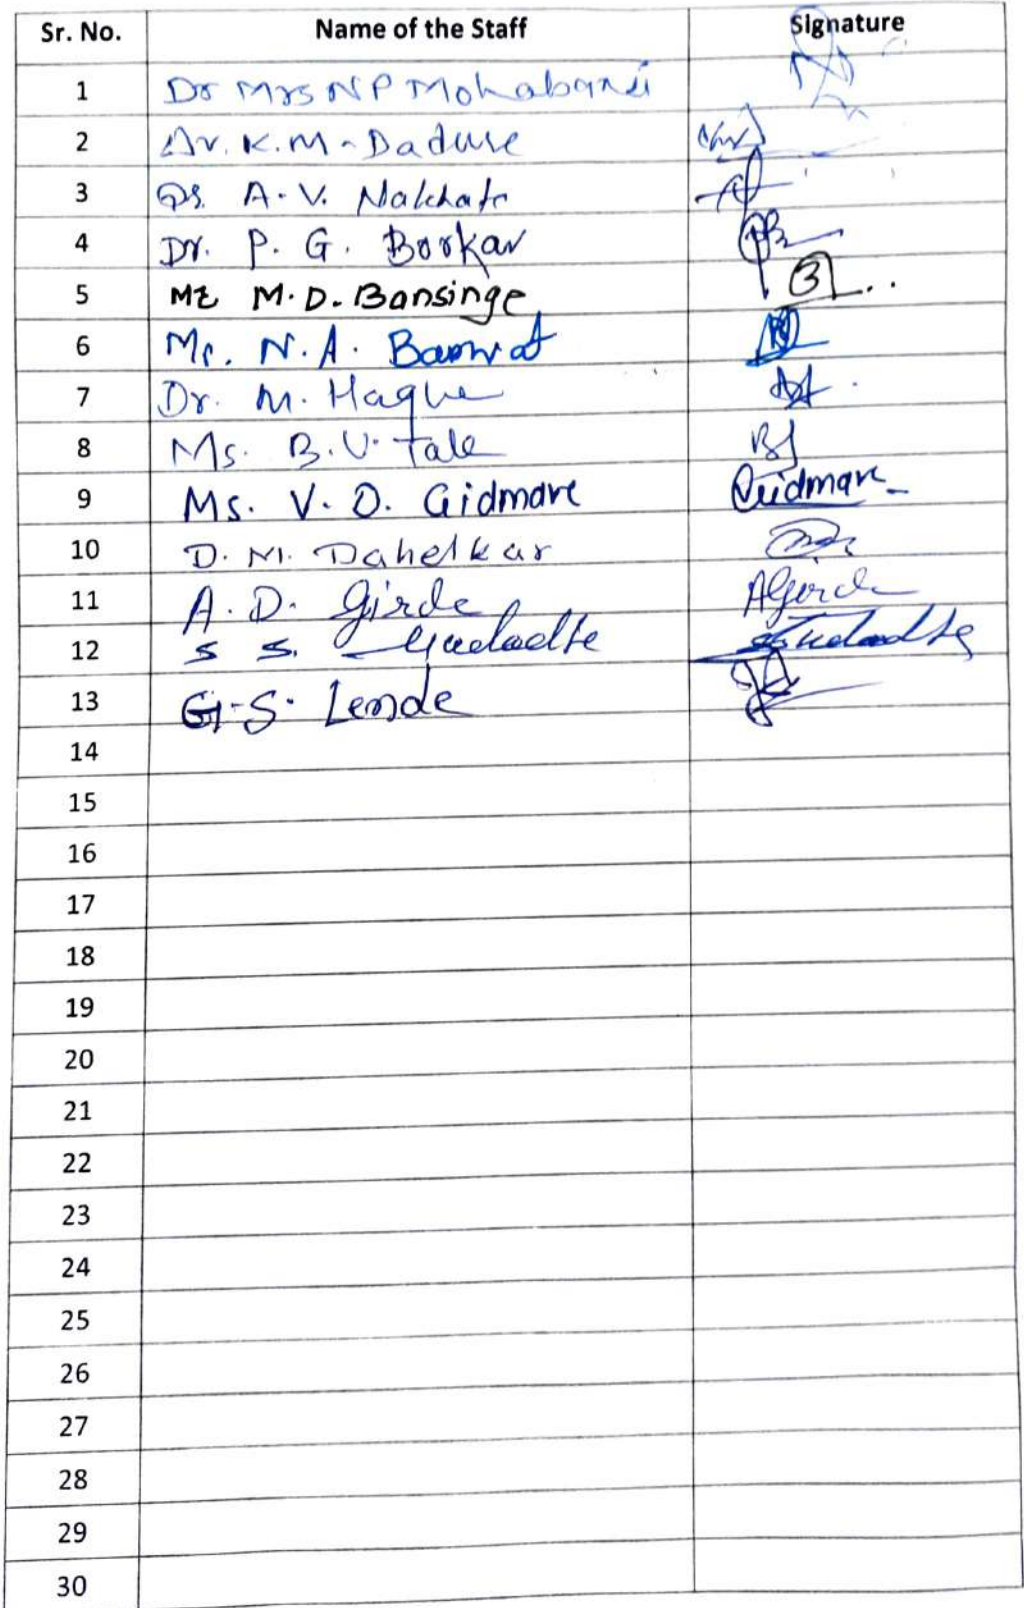 Sr. No. Name of the Staff Signature
1 Dr Mrs N P Mohabansi
2 Dr. K.M. Dadure
3 Dr. A.V. Nakhate
4 Dr. P. G. Borkar
5 Mr M.D. Bansinge
6 Mr. N.A. Barwat
7 Dr. M. Haque
8 Ms. B.U. Tale
9 Ms. V. D. Gidmare Gidmare
10 D. M. Dahelkar
11 A. D. Girde AGirde
12 S S.
13 G.S. Lende
14
15
16
17
18
19
20
21
22
23
24
25
26
27
28
29
30